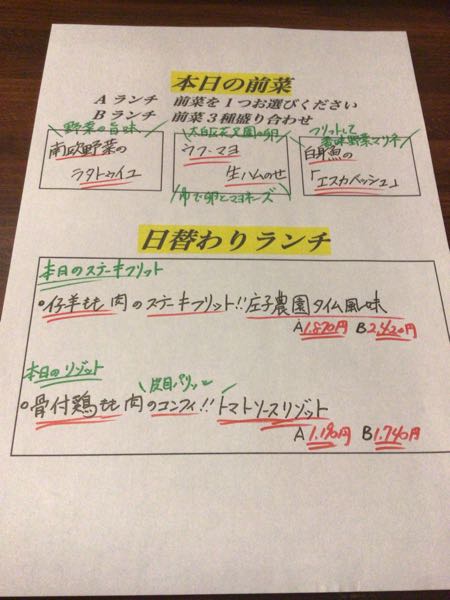 本日の前菜
Aランチ 前菜を1つお選びください
Bランチ 前菜3種盛り合わせ
野菜の旨味
南欧野菜の
ラタトゥイユ
ウフ・マヨ
生ハムのせ
ゆで卵とマヨネーズ
フリットして
香味野菜マリネ
白身魚の
「エスカベッシュ」
日替わりランチ
本日のステーキフリット
○仔羊もも肉のステーキフリット!!庄子農園タイム風味
A1.870円 B2.420円
本日のリゾット
皮目パリッ
○骨付鶏もも肉のコンフィ!!トマトソースリゾット
A1.190円 B1.740円